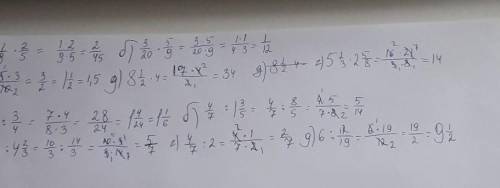 1/9 · 2/5 = 1·2/9·5 = 2/45 б) 3/20 · 5/9 = 3·5/20·9 = 1·1/4·3 = 1/12
5·3/10₂ = 3/2 = 1 1/2 = 1,5 д) 8 1/2 · 4 = 17·4²/2₁ = 34 г) 5 1/3 · 2 5/8 = 16²·21⁷/3₁·8₁ = 14
: 3/4 = 7·4/8·3 = 28/24 = 1 4/24 = 1 1/6 б) 4/7 : 1 3/5 = 4/7 : 8/5 = 4·5/7·8₂ = 5/14
: 4 2/3 = 10/3 : 14/3 = 10·3/3·14 = 5/7 г) 4/7 : 2 = 4·1/7·2₁ = 2/7 д) 6 : 12/19 = 6¹·19/12₂ = 19/2 = 9 1/2